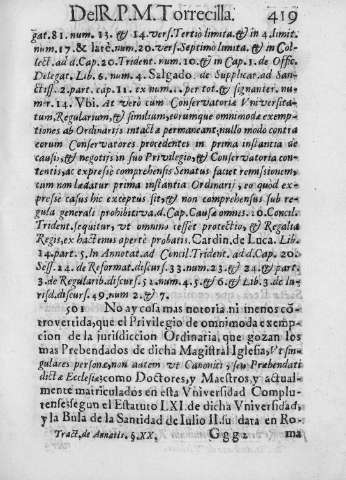 Del R. P. M. Torrecilla. 419
gat. 81. num. 13. & 14. vers. Tertio limita. & in 4. limit.
num. 17. & latè. num. 20. vers. Septimo limita. & in Col-
lect. ad d. Cap. 20. Trident. num. 10. & in Cap. 1. de Offic.
Delegat. Lib. 6. num. 4. Salgado. de Supplicat. ad Sanc-
tiss. 2. part. cap. 11. ex num. 1. per tot. & signanter. nu-
mer. 14. Vbi. At verò cum Conservatoria Vniversita-
tum, Regularium, & similium, eorumque omnimodæ exemp-
tiones ab Ordinarijs intactæ permaneant, nullo modo contra
eorum Conservatores procedentes in prima instantia de
causis, & negotijs in suo Privilegio, & Conservatoria con-
tentis, ac expresè comprehensis Senatus faciet remissionem,
cum non lædatur prima instantia Ordinarij, eo quòd ex-
presse casus hic exceptus sit, & non comprehensus sub re-
gula generali prohibitiva d. Cap. Causæ omnes. 10. Concil.
Trident. sequitur, vt omnino cesset protectio, & Regalia
Regis, ex hactenus opertè probatis. Cardin. de Luca. Lib.
14. part. 5. In Annotat. ad Concil. Trident. ad d. Cap. 20.
Sess. 24. de Reformat. discurs. 33. num. 23. & 24. & part.
3. de Regularib. discurs. 52. num. 4. 5. & 6. & Lib. 3. de Iu-
risd. discurs. 49. num 2. & 7.
501 No ay cosa mas notoria ni menos cõ-
trovertida, que el Privilegio de omnimoda exemp-
cion de la jurisdiccion Ordinaria, que gozan los
mas Prebendados de dicha Magistral Iglesia, Vt sin-
gulares personæ, non autem vt Canonici, seu Prebendati
dictæ Ecclesiæ; como Doctores, y Maestros, y actual-
mente matriculados en esta Vniversidad Complu-
tense: segun el Estatuto LXI. de dicha Vniversidad,
y la Bula de la Santidad de Iulio II. su data en Ro-
Tract. de Annatis. §. XX. Ggg2 ma